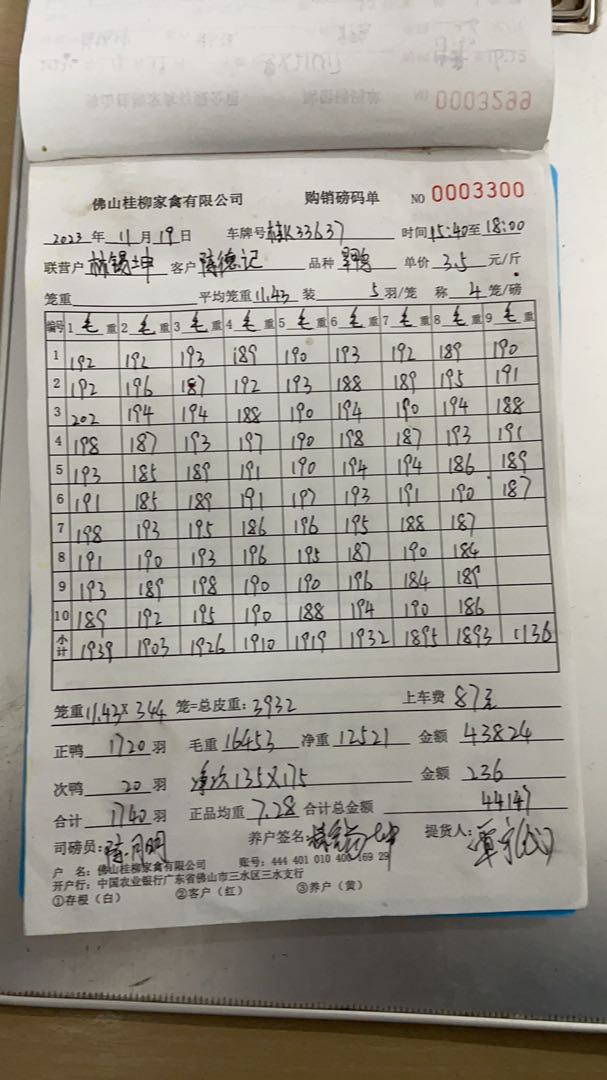 NO 0003299
佛山桂柳家禽有限公司 购销磅码单 NO 0003300
2023 年 11 月 19 日 车牌号 桂K33637 时间 15:40 至 18:00
联营户 林锡坤 客户 陈德记 品种 单价 3.5 元/斤
笼重 平均笼重 11.43 装 5 羽/笼 称 4 笼/磅
编号 1 毛 重 2 毛 重 3 毛 重 4 毛 重 5 毛 重 6 毛 重 7 毛 重 8 毛 重 9 毛 重
1 192 192 193 189 190 193 192 189 190
2 192 196 187 192 193 188 189 195 191
3 202 194 194 188 190 194 190 194 188
4 198 187 193 197 190 198 187 193 191
5 193 185 189 191 190 194 194 186 189
6 191 185 189 191 197 193 191 190 187
7 198 193 195 186 196 195 188 187
8 191 190 193 196 195 187 190 184
9 193 189 198 190 190 196 184 189
10 189 192 195 190 188 194 190 186
小计 1939 1903 1926 1910 1919 1932 1895 1893 1136
笼重 11.43 × 344 笼=总皮重: 3932 上车费 87元
正鸭 1720 羽 毛重 16453 净重 12521 金额 43824
次鸭 20 羽 135×1.75 金额 236
合计 1740 羽 正品均重 7.28 合计总金额 44147
司磅员: 陈月明 养户签名: 提货人:
户 名: 佛山桂柳家禽有限公司 账号: 444 401 010 400 169 29
开户行: 中国农业银行广东省佛山市三水区三水支行
①存根（白） ②客户（红） ③养户（黄）